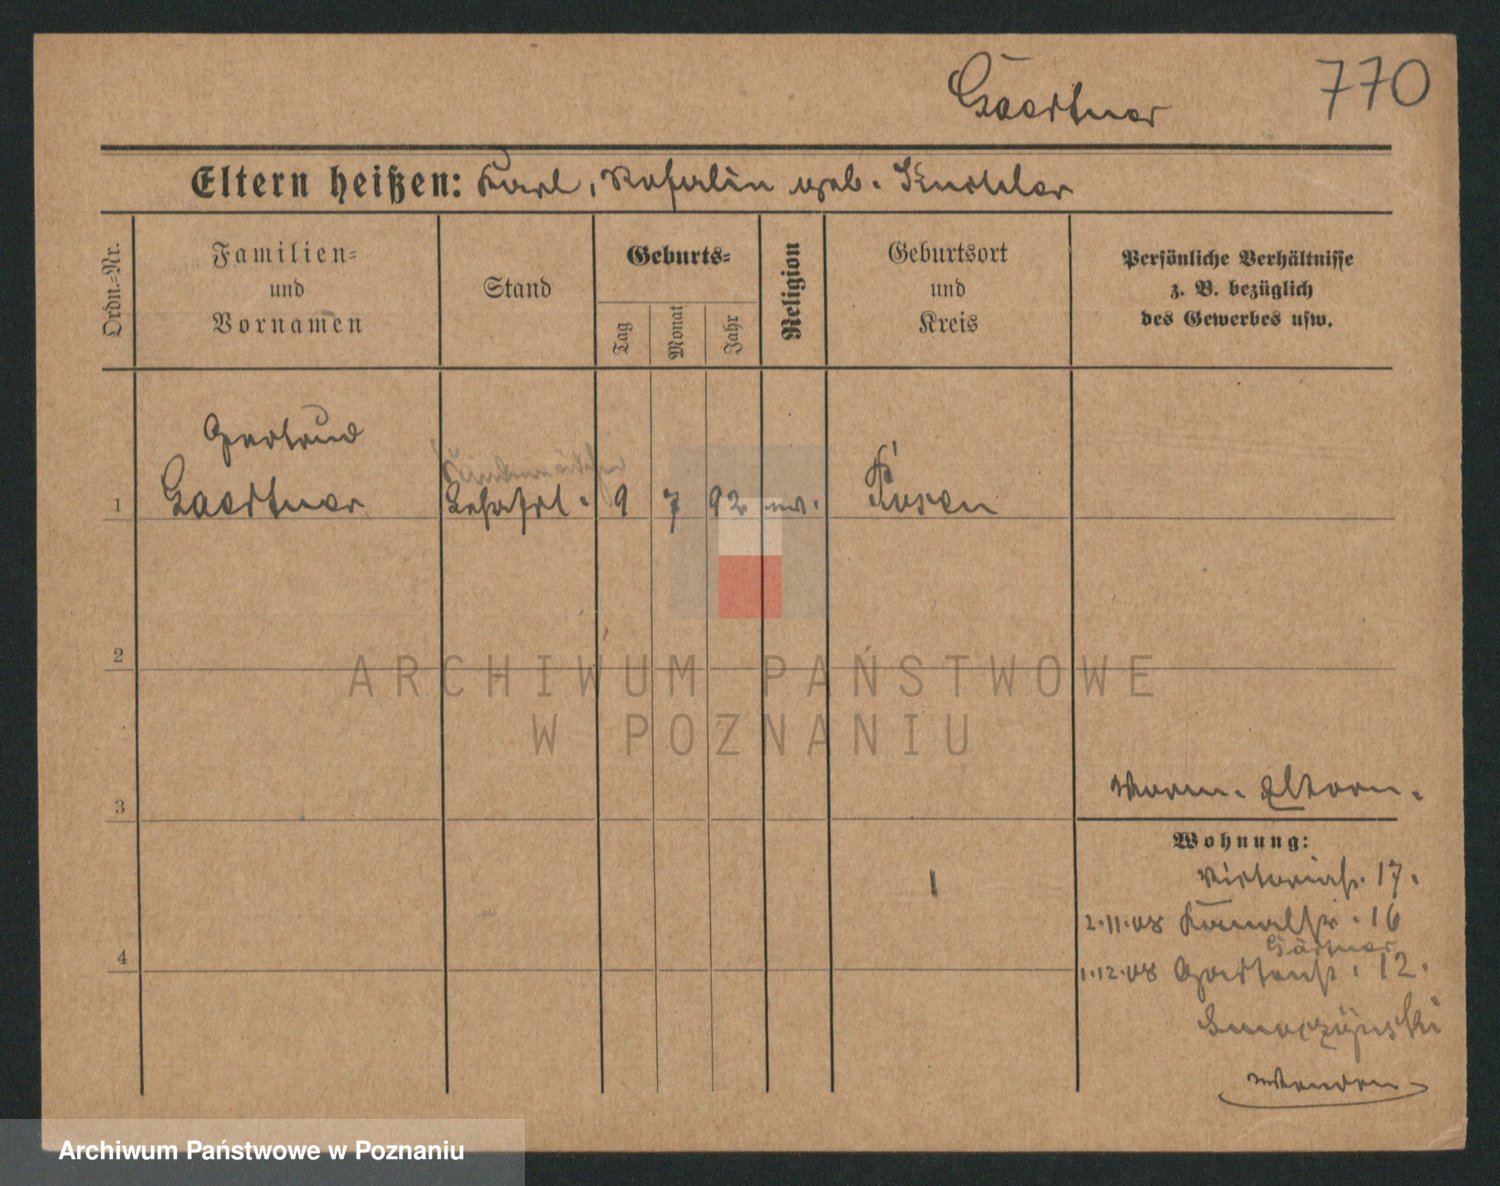 Gaertner 770
Eltern heißen: Karl, Rosalie geb.
Ordn.-Nr.
Familien-
und
Vornamen
Stand
Geburts-
Tag
Monat
Jahr
Religion
Geburtsort
und
Kreis
Persönliche Verhältnisse
z. B. bezüglich
des Gewerbes usw.
Gertrud
1 Gaertner 9 7 92 ev. Posen
2
ARCHIWUM PAŃSTWOWE
W POZNANIU
3 Eltern.
Wohnung:
Victoriastr. 17.
2.11.08 Kanalstr. 16
Gärtner
4 1.12.08 Gartenstr. 12.
Archiwum Państwowe w Poznaniu